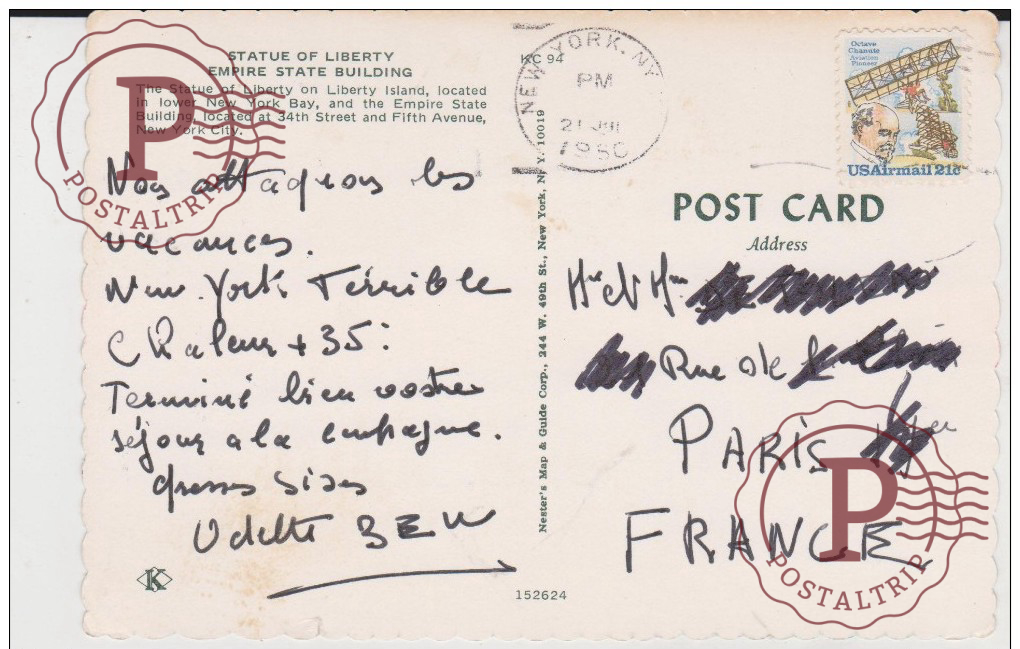 STATUE OF LIBERTY
EMPIRE STATE BUILDING
The Statue of Liberty on Liberty Island, located
in lower New York Bay, and the Empire State
Building, located at 34th Street and Fifth Avenue,
New York City.
KC 94
NEW YORK, NY
PM
21 JUL
1980
Octave
Chanute
Aviation
Pioneer
USAirmail 21c
P
POSTALTRIP
Nous attaquons les
vacances.
New. York Terrible
Chaleur + 35:
Terminé bien vostre
séjour a la campagne.
grosses bises
Odette
K
Nester's Map & Guide Corp., 244 W. 49th St., New York, N. Y. 10019
152624
POST CARD
Address
Mr et Mme
Rue de
PARIS
FRANCE
P
POSTALTRIP